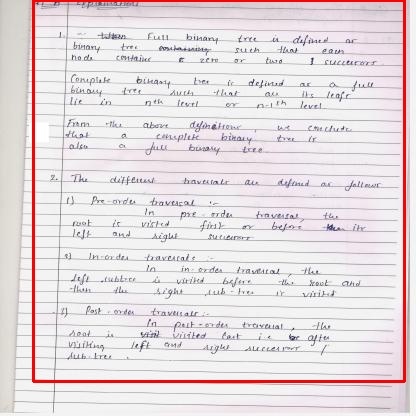 Explanation
1. Full binary tree is defined as
binary tree such that each
node contains zero or two successors.
Complete binary tree is defined as a full
binary tree such that all its leafs
lie in nth level or n-1th level
From the above definitions, we conclude
that a complete binary tree is
also a full binary tree.
2. The different traversals are defined as follows
1) Pre-order traversal :-
In pre-order traversal, the
root is visited first or before its
left and right successors
2) In-order traversals :-
In in-order traversal, the
left subtree is visited before the root and
then the right sub-tree is visited
3) Post-order traversals :-
In post-order traversal, the
root is visited last i.e after
visiting left and right successors /
sub-tree.